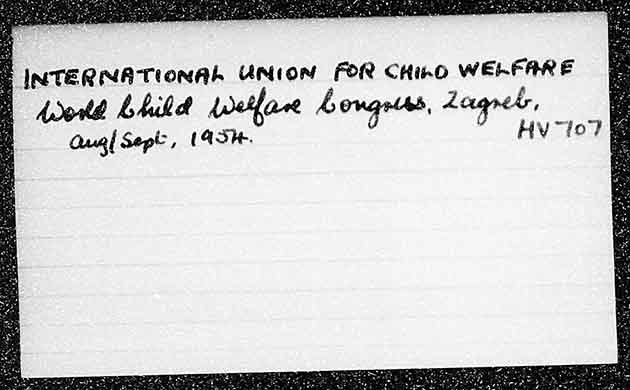 INTERNATIONAL UNION FOR CHILD WELFARE
World Child Welfare Congress, Zagreb,
Aug/Sept, 1954.
HV 707